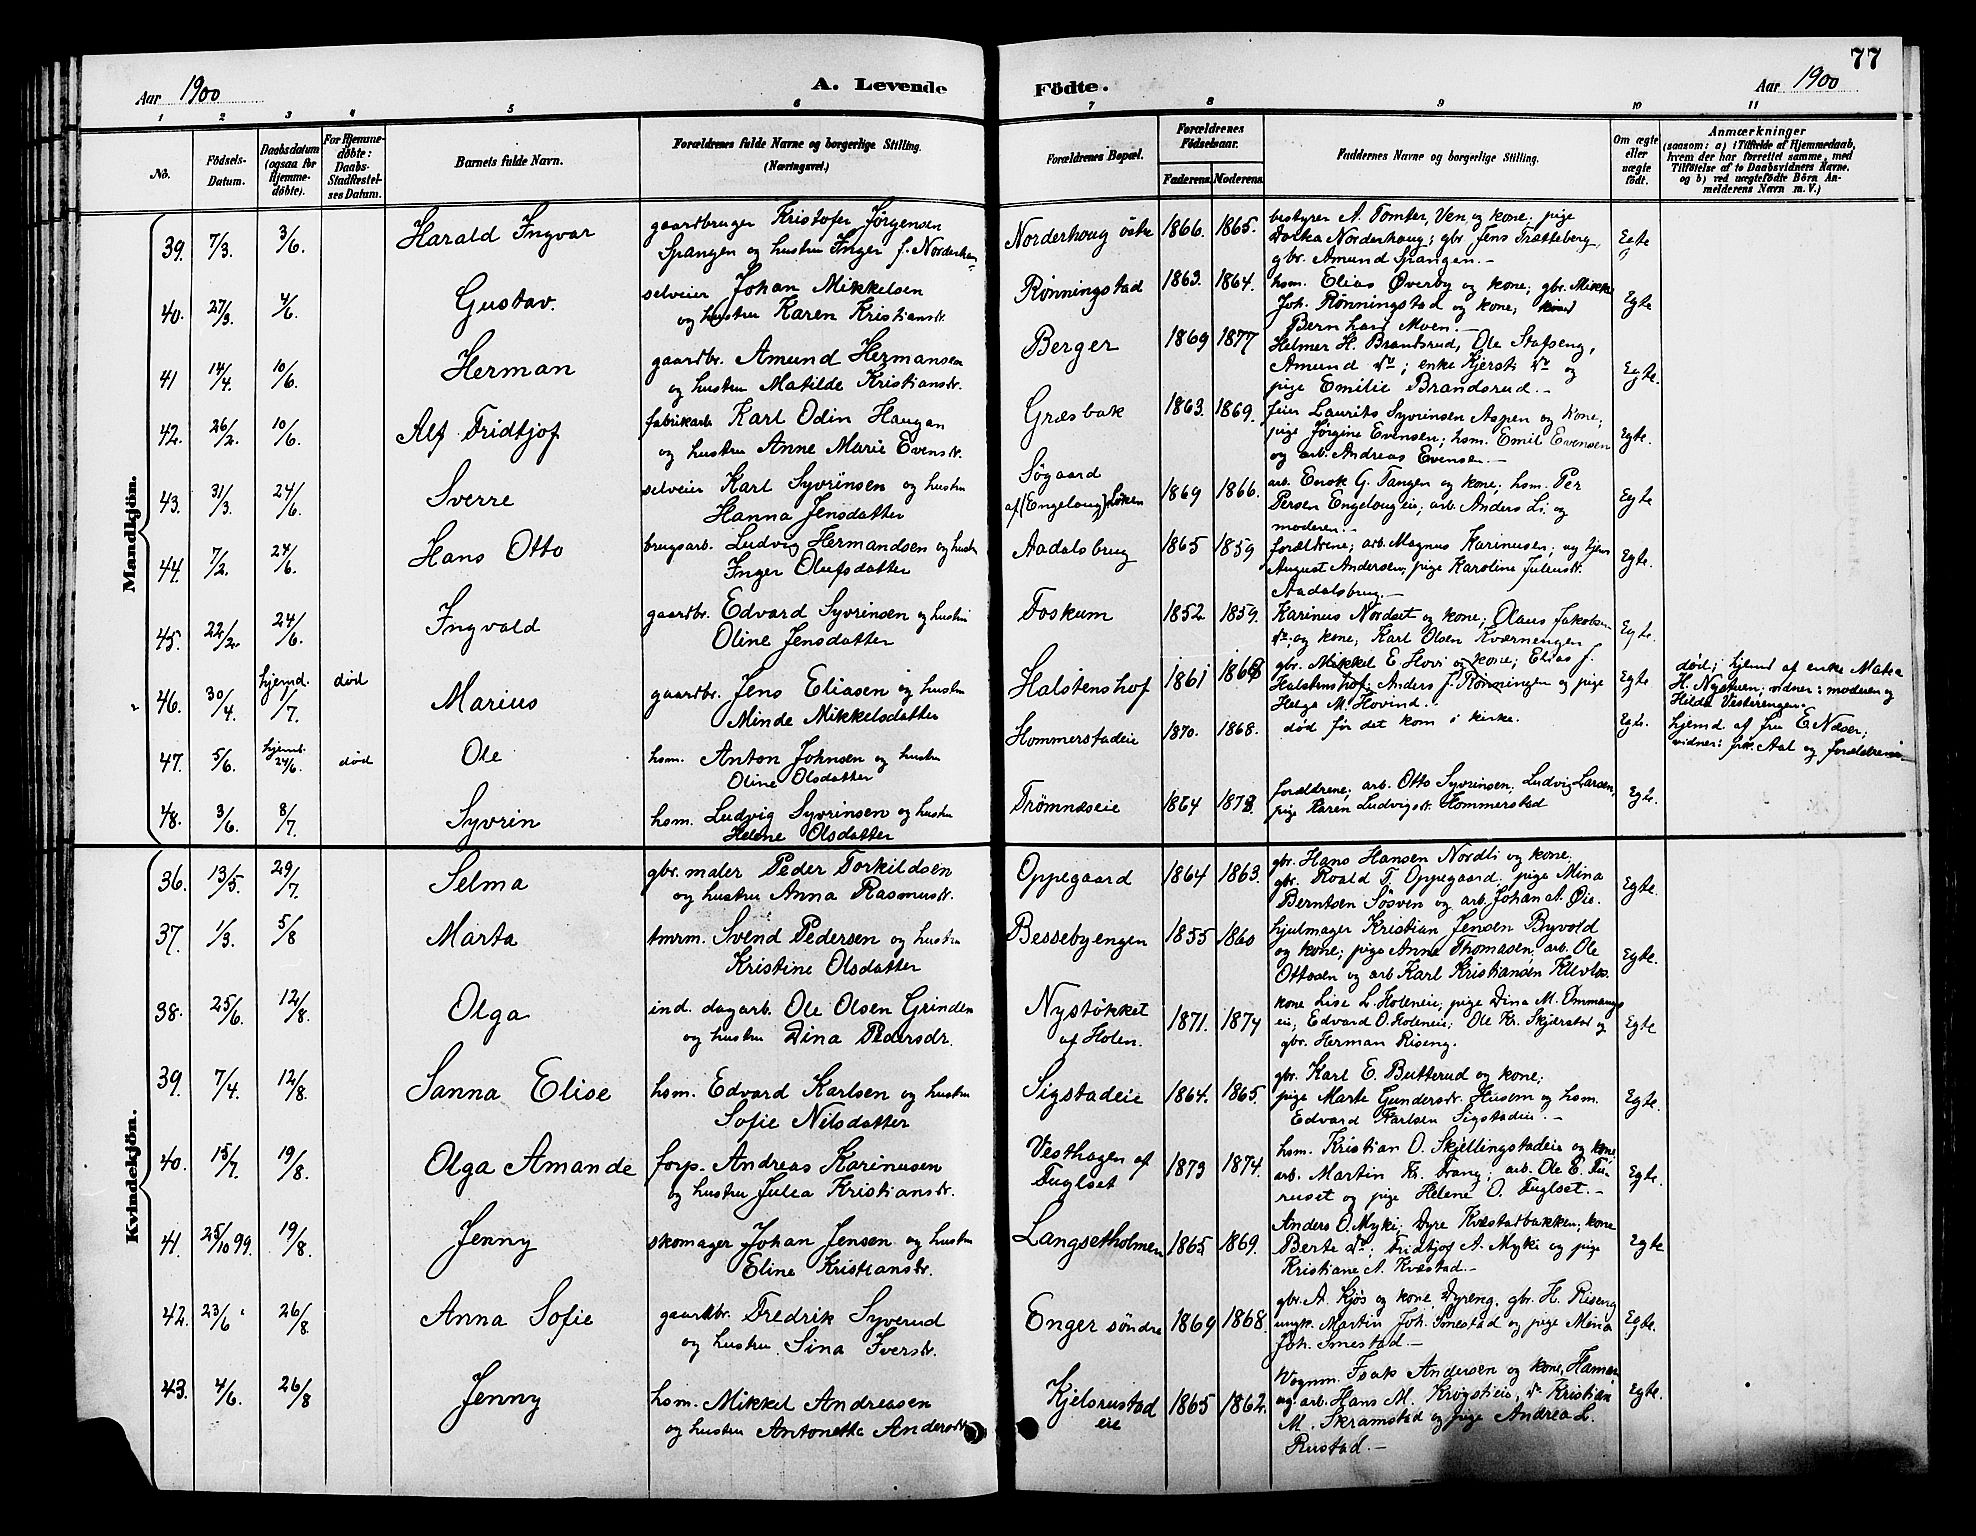 77
Aar 1900 A. Levende Födte. Aar 1900
1 2 3 4 5 6 7 8 9 10 11
No.
Födsels-Datum.
Daabsdatum (ogsaa for Hjemmedöbte).
For Hjemmedöbte: Daabs-Stadfæstelses Datum.
Barnets fulde Navn.
Forældrenes fulde Navne og borgerlige Stilling.
(Næringsvei.)
Forældrenes Bopæl.
Forældrenes Födselsaar.
Faderens. Moderens.
Faddernes Navne og borgerlige Stilling.
Om ægte eller uægte födt.
Anmærkninger
(saasom: a) i Tilfælde af Hjemmedaab, hvem der har forrettet samme, med Tilföielse af to Daabsvidners Navne, og b) ved uægtefödte Börn Anmelderens Navn m. V.)
Mandkjön.
39. 7/3. 3/6. Harald Ingvar gaardbruger Kristofer Jørgensen
Spangen og hustru Inger f. Norderhau-
Norderhoug östre 1866. 1865. bestyrer A. Tomter, Ven og kone; pige
Norderhaug; gbr. Jens Trætteberg,
gbr. Amund Spangen.- Egte
40. 27/3. 4/6. Gustav. selveier Johan Mikkelsen
og hustru Karen Kristiansdr.
Rønningstad 1863. 1864. hsm. Elias Øverby og kone; gbr. Mikkel
Joh. Rønningstad og kone;
Bernhard Moen.- Egte
41 14/4. 10/6. Herman gaardbr. Amund Hermansen
og hustru Matilde Kristiansdr.
Berger 1869 1877 Helmer H. Brandsrud, Ole Stafseng,
Amund do; enke Kjersti do og
pige Emilie Brandsrud.- Egte.
42. 26/2. 10/6. Alf Fridtjof fabrikarb. Karl Odin Haugan
og hustru Anne Marie Evensdr.
Græsbak 1863. 1869. feier Laurits Syvrinsen Aspen og kone;
pige Jørgine Evensen; hsm. Emil Evensen
og arb. Andreas Evensen.- Egte.
43. 31/3. 24/6. Sverre selveier Karl Syvrinsen og hustru
Hanna Jensdatter
Søgaard
af (Engeloug) Løken 1869 1866. arb. Enok G. Tangen og kone; hsm. Per
Persen Engelougeie; arb. Anders Li og
moderen.- Egte
44. 7/2. 24/6. Hans Otto brugsarb. Ludvig Hermandsen og hustru
Inger Olufsdatter
Aadalsbrug 1865 1859 forældrene; arb. Magnus Karinusen; ug tjen
August Andersen; pige Karoline Juliusdr.
Aadalsbrug.- Egte.
45. 22/2. 24/6. Ingvald gaardbr. Edvard Syvrinsen og hustru
Oline Jensdatter
Foskum 1852 1859. Karinius Nordset og kone; Olaus Jakobsen
do og kone; Karl Olsen Kværnengen Egte.
46. 30/4. hjemd. 1/7. død Marius gaardbr. Jens Eliasen og hustru
Minde Mikkelsdatter
Halstenshof 1861 1868 gbr. Mikkel E. Hovi og kone; Elias J.
Halstenshof; Anders J. Rønningen og pige
Helga M. Hovind. Egte død; hjemd af enke Matea
H. Nystuen; vidner: moderen og
Hilda Vesterengen.
47. 5/6. hjemd. 24/6. død Ole hsm. Anton Johnsen og hustru
Oline Olsdatter
Hommerstadeie 1870. 1868. død før det kom i kirke. Egte. hjemd af fru E Næser;
vidner: frk. Aal og forældrene
48. 3/6. 8/7. Syvrin hsm. Ludvig Syvrinsen og hustru
Helene Olsdatter
Trømnæseie 1864 1873. forældrene; arb. Otto Syvrinsen, Ludvig Larsen,
pige Karen Ludvigsdr. Hommerstad Egte.
Kvindekjön.
36. 13/5. 29/7. Selma gbr. maler Peder Torkildsen
og hustru Anna Rasmusdr.
Oppegaard 1864 1863. gbr. Hans Hansen Nordli og kone;
gbr. Roald T. Oppegaard, pige Mina
Berntsen Søsven og arb. Johan A. Øie. Egte.
37. 1/3. 5/8 Marta tmrm. Svend Pedersen og hustru
Kristine Olsdatter
Bessebyengen 1855 1860 hjulmager Kristian Jensen Byvold
og kone; pige Anne Thomasen, arb. Ole
Ottosen og arb. Karl Kristiansen Klevbs. Egte.
38. 25/6. 12/8. Olga ind. dagarb. Ole Olsen Grinden
og hustru Dina Pedersdr.
Nystøkket
af Holen. 1871. 1874 kone Lise L. Holeneie; pige Dina M. Ommangs
eie; Edvard O. Holeneie; Ole Kr. Skjærstad og
gbr. Herman Riseng. Egte
39. 7/4. 12/8. Sanna Elise hsm. Edvard Karlsen og hustru
Sofie Nilsdatter
Sigstadeie 1864. 1865. gbr. Karl E. Butterud og kone;
pige Marte Gundersdr. Husem og hsm.
Edvard Karlsen Sigstadeie.- Egte.
40. 15/7. 19/8. Olga Amande forp. Andreas Karinusen
og hustru Julea Kristiansdr.
Vesthagen af
Fuglset 1873 1874. hsm. Kristian O. Skjellingstadeie og kone;
arb. Martin Kr. Vang; arb. Ole E. Fu-
ruset og pige Helene O. Fuglset.- Egte.
41. 25/10 99. 19/8. Jenny skomager Johan Jensen og hustru
Eline Kristiansdr.
Langsetholmen 1865 1869. Anders O. Myki; Dyre Kvæstadbakken; kone
Berte do; Fridtjof A. Myki og pige
Kristiane A. Kvæstad.- Egte
42. 23/6 26/8. Anna Sofie gaardbr. Fredrik Syverud
og hustru Sina Iversdr.
Enger søndre 1869 1868. gbr. A. Kjøs og kone, Dyreng, gbr. H. Riseng
ungk. Martin Joh. Smestad og pige Mina
Joh. Smestad.- Egte.
43. 4/6. 26/8 Jenny hsm. Mikkel Andreasen
og hustru Antonette Andersdr.
Kjelsrustad
eie 1865 1862. Vognm. Isak Andersen og kone, Hamar
og arb. Hans M. Krogstieie, do Kristian
M. Skramstad og pige Andrea L.
Rustad.- Egte.